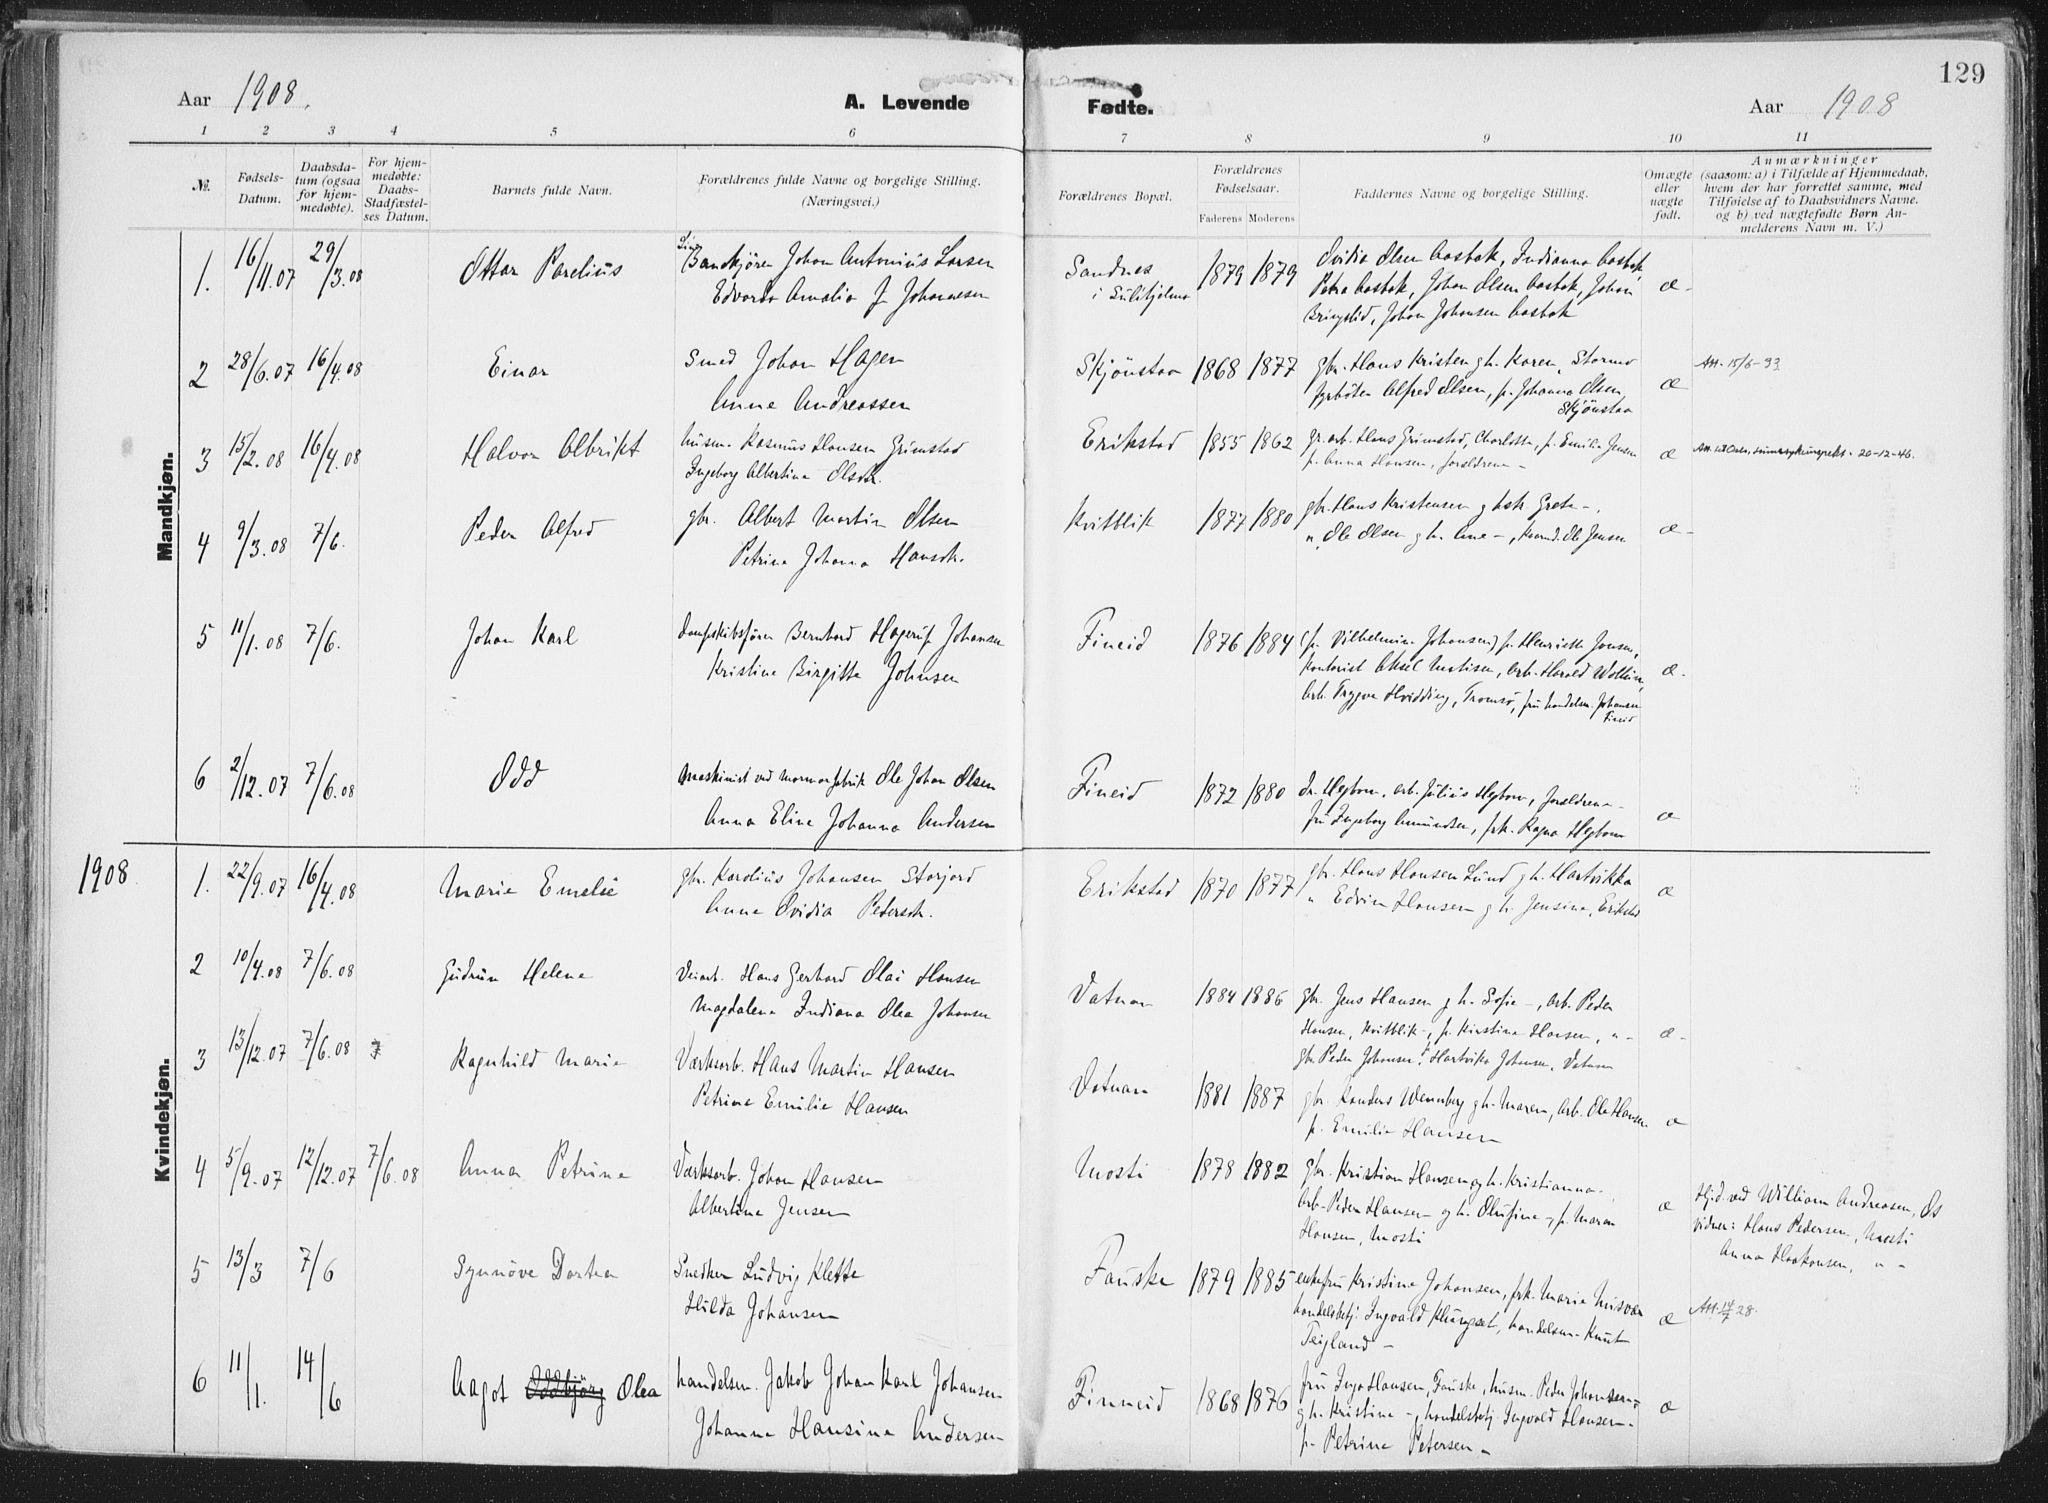 129
Aar 1908. A. Levende Fødte. Aar 1908
1 2 3 4 5 6 7 8 9 10 11
№.
Fødsels-
Datum.
Daabsda-
tum (ogsaa
for hjem-
medøbte).
For hjem-
medøbte:
Daabs-
Stadfæstel-
ses Datum.
Barnets fulde Navn.
Forældrenes fulde Navne og borgelige Stilling.
(Næringsvei.)
Forældrenes Bopæl.
Forældrenes
Fødselsaar.
Faderens Moderens
Faddernes Navne og borgelige Stilling.
Omægte
eller
nægte
født.
Anmærkninger
(saasom: a) i Tilfælde af Hjemmedaab,
hvem der har forrettet samme, med
Tilføielse af to Daabsvidners Navne.
og b) ved nægtefødte Børn An-
melderens Navn m. V.)
Mandkjøn.
1. 16/11.07 29/3.08 Ottar Parelius
Banekjörer Johan Antonius Larsen
Edvarda Amalia f. Johannesen
Sandnes
i Sulitjelma
1879 1879
Ovidia Olsen Aasbak, Indianna Aasbak,
Petra Aasbak, Johan Olsen Aasbak, Johan
Bringslid, Johan Johansen Aasbak
æ -
2 28/6.07 16/4.08 Einar
Smed Johan Hagen
Anne Andreassen
Skjönstaa 1868 1877
gbr. Hans Kristen g h. Karen, Stormo
fyrböter Alfred Olsen, p. Johanna Olsen,
Skjönstaa
æ
Att. 15/6-33
3 15/2.08 16/4.08 Halvor Albrikt
husm. Rasmus Hansen Grimstad
Ingeborg Albertine Olsdtr.
Erikstad 1855 1862
gr. arb. Hans Grimstad, Charlotte, p. Emilie Jensen
p. Anna Hansen, forældrene -
æ
20-12-46.
4 9/3.08 7/6. Peder Alfred
gbr. Albert Martin Olsen
Petrine Johanna Hansdtr.
Kvitblik 1877 1880
gbr. Hans Kristensen g hstr Grete -.
„ Ole Olsen g h. Ane -, Ole Jensen
æ -
5 11/1.08 7/6. Johan Karl
Dampskibsförer Bernhard Hagerup Johansen
Kristine Birgitte Johnsen
Fineid 1876 1884
(p. Vilhelmine Johansen) p. Henriette Jensen,
kontorist Aksel Mortisen, arb. Harald
Arb. Trygve Hvidding, Tromsö, fru handelsm. Johansen
Fineid
æ.
6 2/12.07 7/6.08 Odd
Maskinist ved marmorfabrik Ole Johan Olsen
Anna Eline Johanna Andersen
Fineid 1872 1880
Hegbom, arb. Julius Hegbom, forældrene -
fru Ingeborg Amundsen, frk. Ragna Hegbom
æ
1908
Kvindekjøn.
1. 22/9.07 16/4.08 Marie Emelie
gbr. Karolius Johansen Storjord
Anne Ovidia Pedersdtr.
Erikstad 1870 1877
gbr. Hans Hansen Lund g h. Hartvikka
„ Edvin Hansen g h. Jensine, Erikstad
æ
2 10/4.08 7/6.08 Gudrun Helene
Veiarb. Hans Gerhard Olai Hansen
Magdalena Indiana Olea Johansen
Vatnan 1884 1886
gbr. Jens Hansen g h. Sofie -, arb. Peder
Hansen, Kvitblik -, p. Kirstine Hansen, „ -
gbr Peder Johansen, Hartvika Johansen, Vatnan
æ -
3 13/12.07 7/6.08 Ragnhild Marie
Værksarb. Hans Martin Hansen
Petrine Emilie Hansen
Vatnan 1881 1887
gbr Randers Wennberg g h. Maren, arb. Ole Hansen
p. Emilie Hansen
æ
4 5/9.07 12/12.07 7/6.08 Anna Petrine
Værksarb. Johan Hansen
Albertine Jensen
Mosti 1878 1882
gbr. Kristian Hansen og h. Kristianna -.
Arb. Peder Hansen g h. Olufine -, p. Maren
Hansen, Mosti
æ
Hjd. ved William Andreasen, Os
Vidner: Hans Pedersen, Mosti
Anna Haakonsen, „ -
5 13/3 7/6 Synnöve Dortea
Snedker Ludvig Klette
Hilda Johansen
Fauske 1879 1885
enkefru Kristine Johansen, frk. Marie Misvær
handelsbetj. Ingvald Klungset, handelsm. Knut
Teigland -
æ
Att. 14/7 28.
6 11/1. 14/6 Aagot Oddbjörg Olea
handelsm. Jakob Johan Karl Johansen
Johanna Hansine Andersen
Finneid 1868 1876
fru Inga Hansen, Fauske, husm. Peder Johansen -
g h. Kristine -, handelsbetj. Ingvald Hansen -
p. Petrine Petersen -
æ